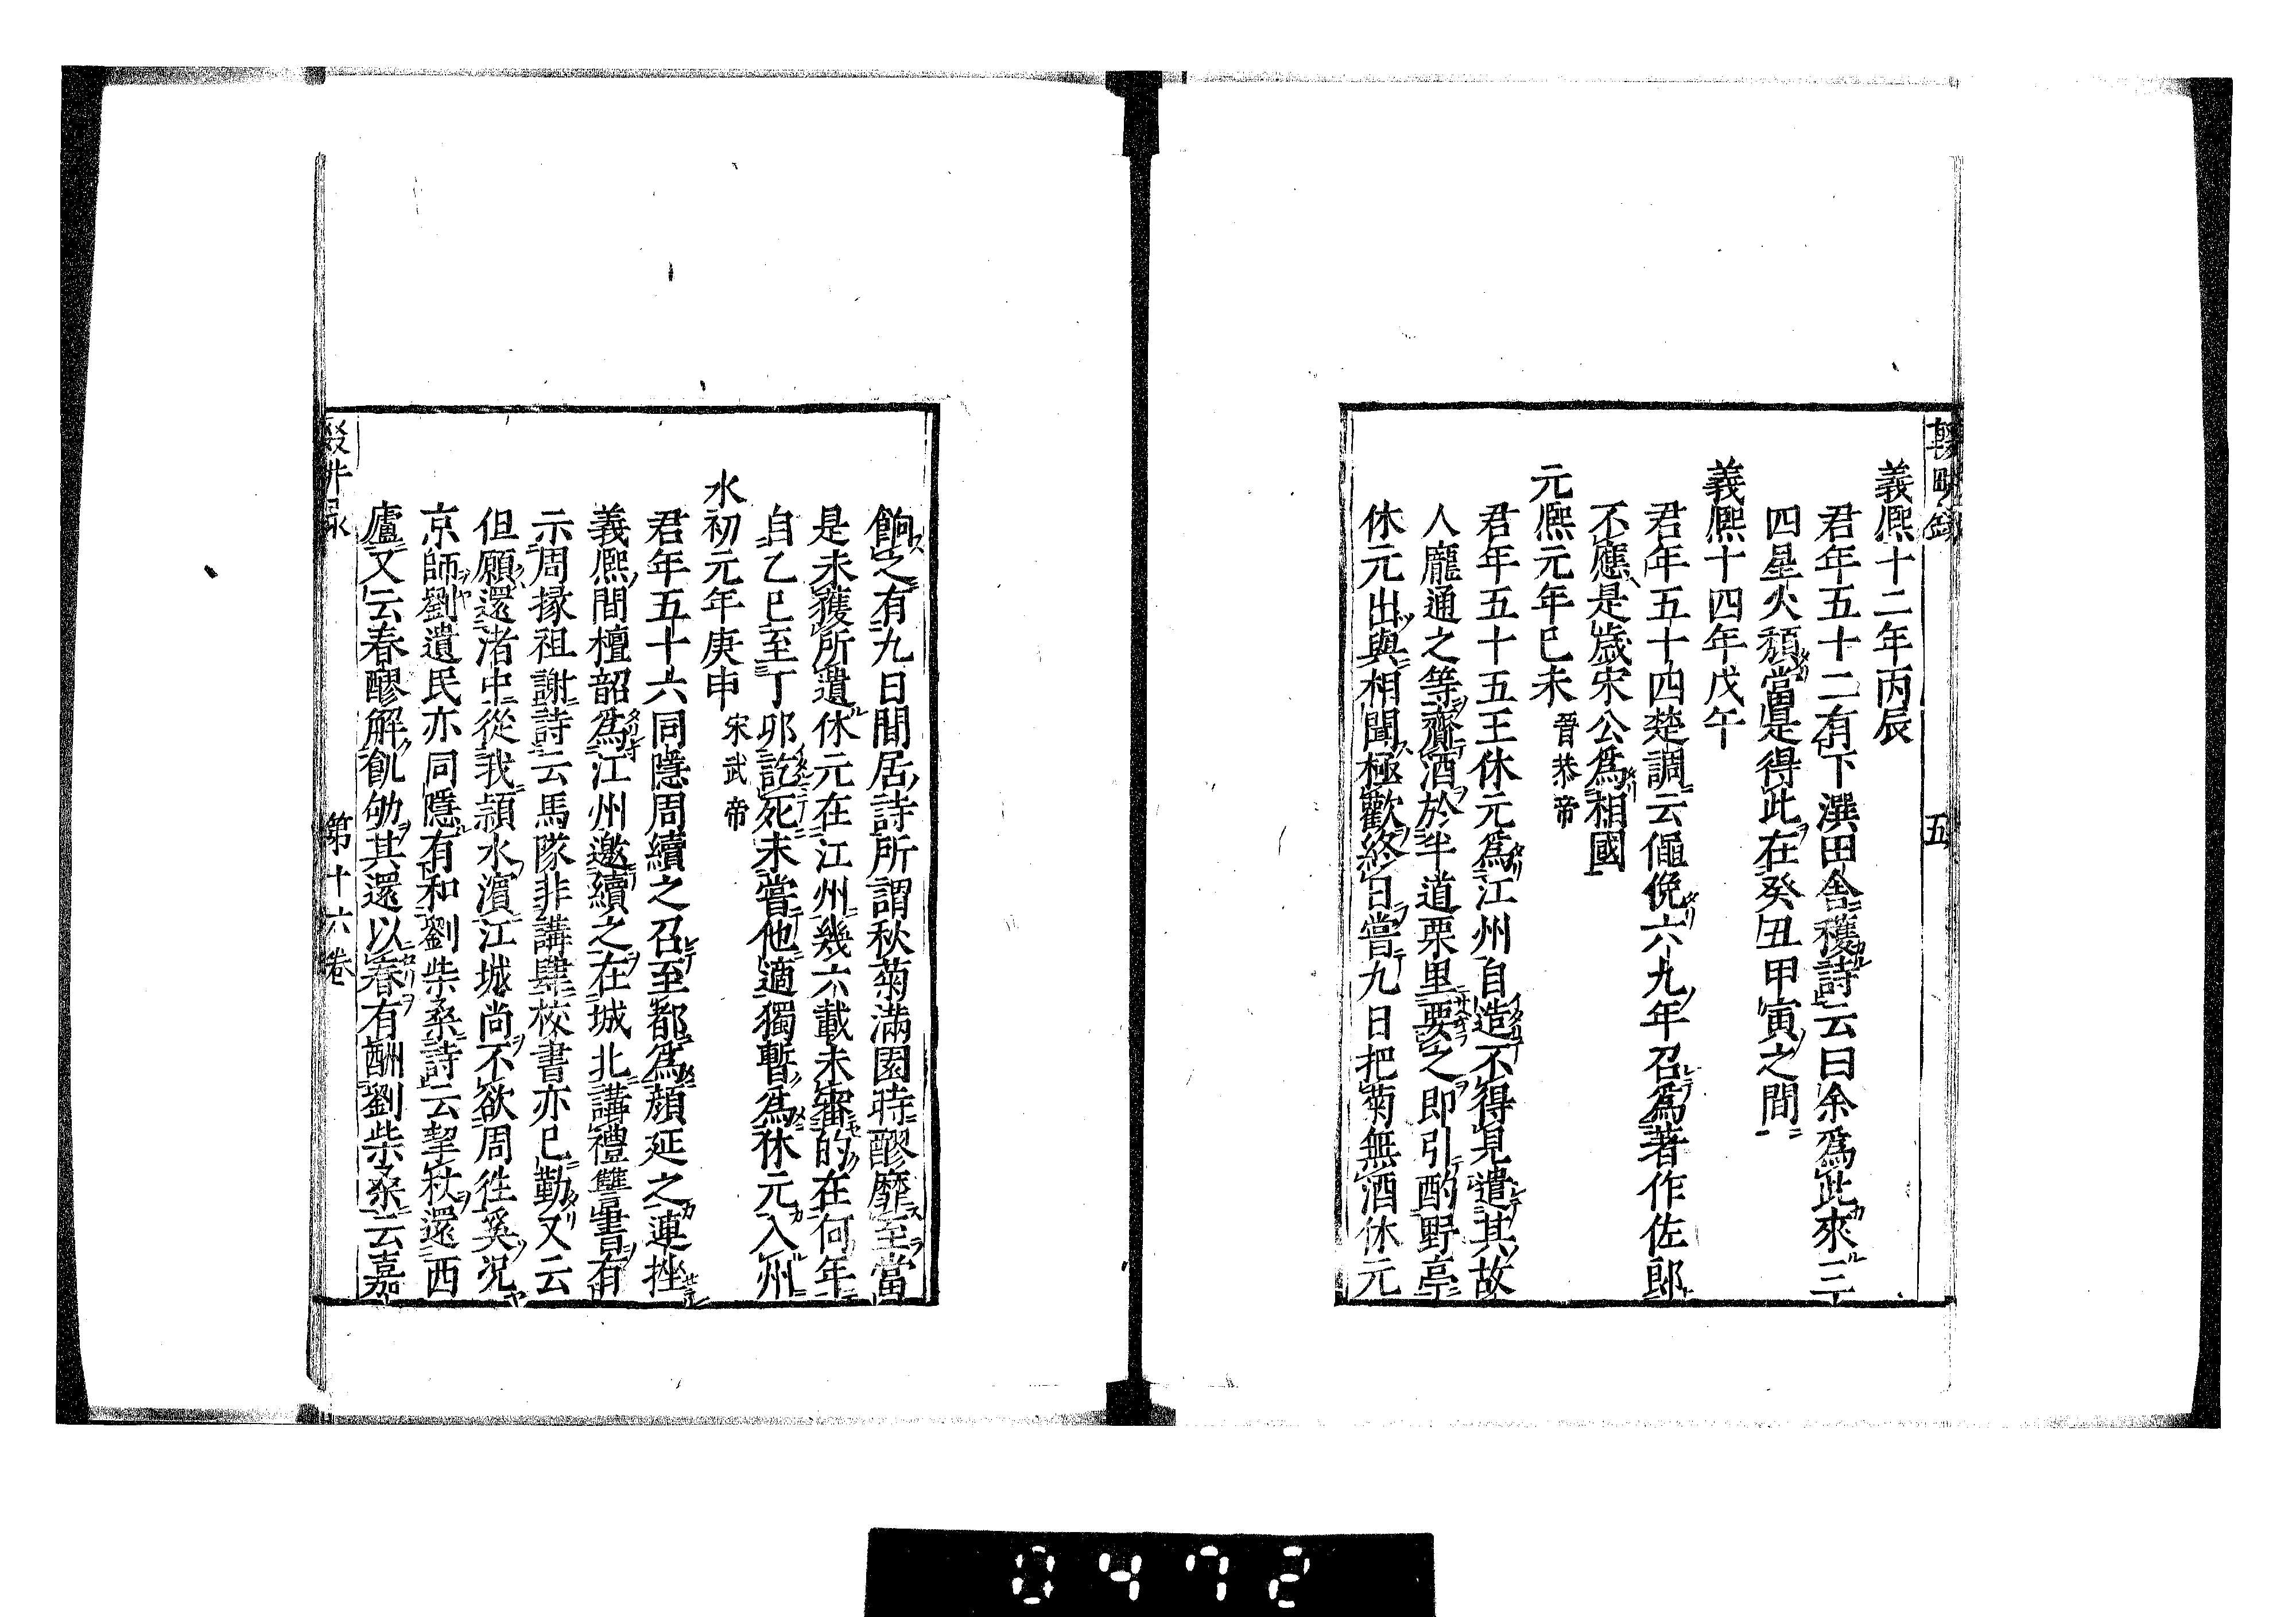 輟畊錄
五
義熈十二年丙辰
君年五十二有下潠田舍穫詩云曰余爲此來三
四星火頹當是得此在癸丑甲寅之間
義熈十四年戊午
君年五十四楚調云僶俛六九年召爲著作佐郎
不應是歲宋公爲相國
元熈元年巳未 晉恭帝
君年五十五王休元爲江州自造不得見遣其故
人龐通之等齎酒於半道栗里要之即引酌野亭
休元出與相聞極歡終日嘗九日把菊無酒休元
餉之有九日間居詩所謂秋菊滿園時醪靡至當
是未獲所遺休元在江州幾六載未審的在何年
自乙巳至丁夘訖死未嘗他適獨暫爲休元入州
水初元年庚申 宋武帝
君年五十六同隱周續之召至都爲顔延之連挫
義熈間檀韶爲江州邀續之在城北講禮讐書有
示周掾祖謝詩云馬隊非講肆校書亦巳勤又云
但願還渚中從我頴水濵江城尚不欲周徃奚况
京師劉遺民亦同隱有和劉柴桑詩云挈杖還西
廬又云春醪解飢劬其還以春有酬劉柴桑云嘉
第十六卷
0472